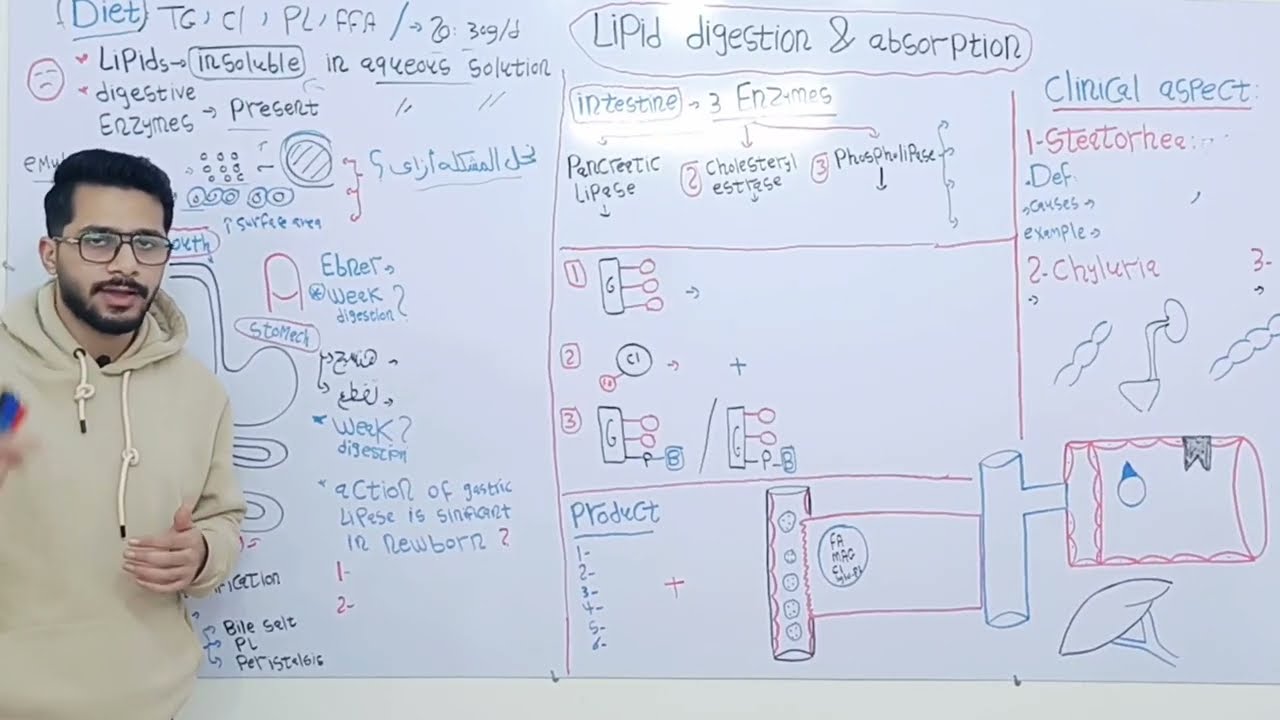 (Diet) TG, Cl, PL, FFA / → 20:30g/d
* Lipids → insoluble in aqueous solution
* digestive
Enzymes → Present " "
eMul
نحل المشكلة ازاى ؟
↑ surface area
outh
Ebner →
* Week ?
digestion
Stomech
* Week ?
digestion
* action of gastric
Lipase is sinficant
in newborn ?
1-
2-
fication
Bile salt
PL
Peristalsis
Lipid digestion & absorption
intestine → 3 Enzymes
Pancreatic
Lipase
2 Cholesteryl
estrase
3 Phospholipase
1 G →
2 Cl → +
3 G P-B / G P-B
Product
1-
2-
3-
4-
5-
6-
+
FA
MAG
Clinical aspect:
1-Steatorhea:
.Def.
causes →
example →
2-Chyluria
3-